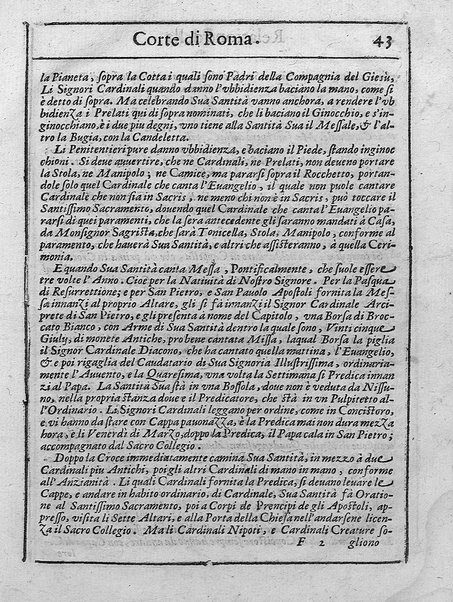 Corte di Roma. 43
la Pianeta, sopra la Cotta i quali sono Padri della Compagnia del Giesù,
Li Signori Cardinali quando danno l'vbbidienza baciano la mano, come si
è detto di sopra. Ma celebrando Sua Santità vanno anchora, a rendere l'vb
bidienza i Prelati qui di sopra nominati, che li baciano il Ginocchio, e s'in-
ginocchiano, è i due piu degni, vno tiene alla Santità Sua il Messale, & l'al-
tro la Bugia, con la Candeletta.
Li Penitentieri pure danno vbbidienza, e baciano il Piede, stando inginoc
chioni. Si deve auuertire, che ne Cardinali, ne Prelati, non deueno portare
la Stola, ne Manipolo; ne Camice, ma pararsi sopra il Rocchetto, portan-
dole solo quel Cardinale che canta l'Euangelio, il quale non puole cantare
Cardinale che non sia in Sacris, ne meno chi non è in Sacris, può toccare il
Santissimo Sacramento, douendo quel Cardinale che canta l'Euangelio
pararsi di quei paramenti, che la sera antecedente gli saranno mandati à Casa,
da Monsignor Sagrista, che sarà Tonicella, Stola, Manipolo, conforme al
paramento, che hauerà Sua Santità, e altri che assisteranno, à quella Ceri-
monia.
E quando Sua Santità canta Messa, Pontificalmente, che suole essere
tre volte l'Anno. Cioè per la Natiuità di Nostro Signore. Per la Pasqua
di Resurrettione; e per San Pietro, e San Pauolo Apostoli fornita la Mes-
sa innanzi al proprio Altare, gli si fà innanzi il Signor Cardinale Arci-
prete di San Pietro, e gli presenta à nome del Capitolo, vna Borsa di Broc-
cato Bianco, con Arme di Sua Santità dentro la quale sono, Vinti cinque
Giulij, di monete Antiche, pro bene cantata Missa, laqual Borsa la piglia
il Signor Cardinale Diacono, che ha cantato quella mattina, l'Euangelio,
& e poi rigaglia del Caudatario di Sua Signoria Illustrissima, ordinaria-
mente l'Auuento, e la Quaresima, vna volta la Settimana si Predica innan
zi al Papa. La Santità Sua stà in vna Bossola, doue non è veduta da Nissu-
no, nella propria stanza doue è il Predicatore, che stà in vn Pulpitetto al-
l'Ordinario. Li Signori Cardinali seggano per ordine, come in Concistoro,
e vi hanno da stare con Cappa pauonazza, è la Predica mai non dura mezza
hora, e li Venerdì di Marzo, doppo la Predica, il Papa cala in San Pietro;
accompagnato dal Sacro Collegio.
Doppo la Croce immediatamente camina Sua Santità, in mezzo à due
Cardinali piu Antichi, poi gli altri Cardinali di mano in mano, conforme
all'Anzianità. Li quali Cardinali fornita la Predica, si deuano leuare le
Cappe, e andare in habito ordinario, di Cardinale, Sua Santità fà Oratio-
ne al Santissimo Sacramento, poi a Corpi de Prencipi de gli Apostoli, ap-
presso, visita li Sette Altari, e alla Porta della Chiesa nell'andarsene licen-
za il Sacro Collegio. Ma li Cardinali Nipoti, e Cardinali Creature so-
F 2 gliono